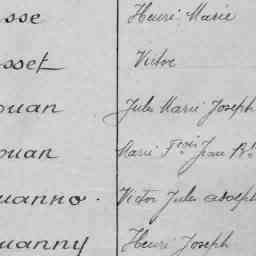 sse Henri Marie
sset Victor
ouan Jules Marie Joseph
ouan Marie Fcois Jean Bte
uanno . Victor Jules Adolph
uanny Henri Joseph